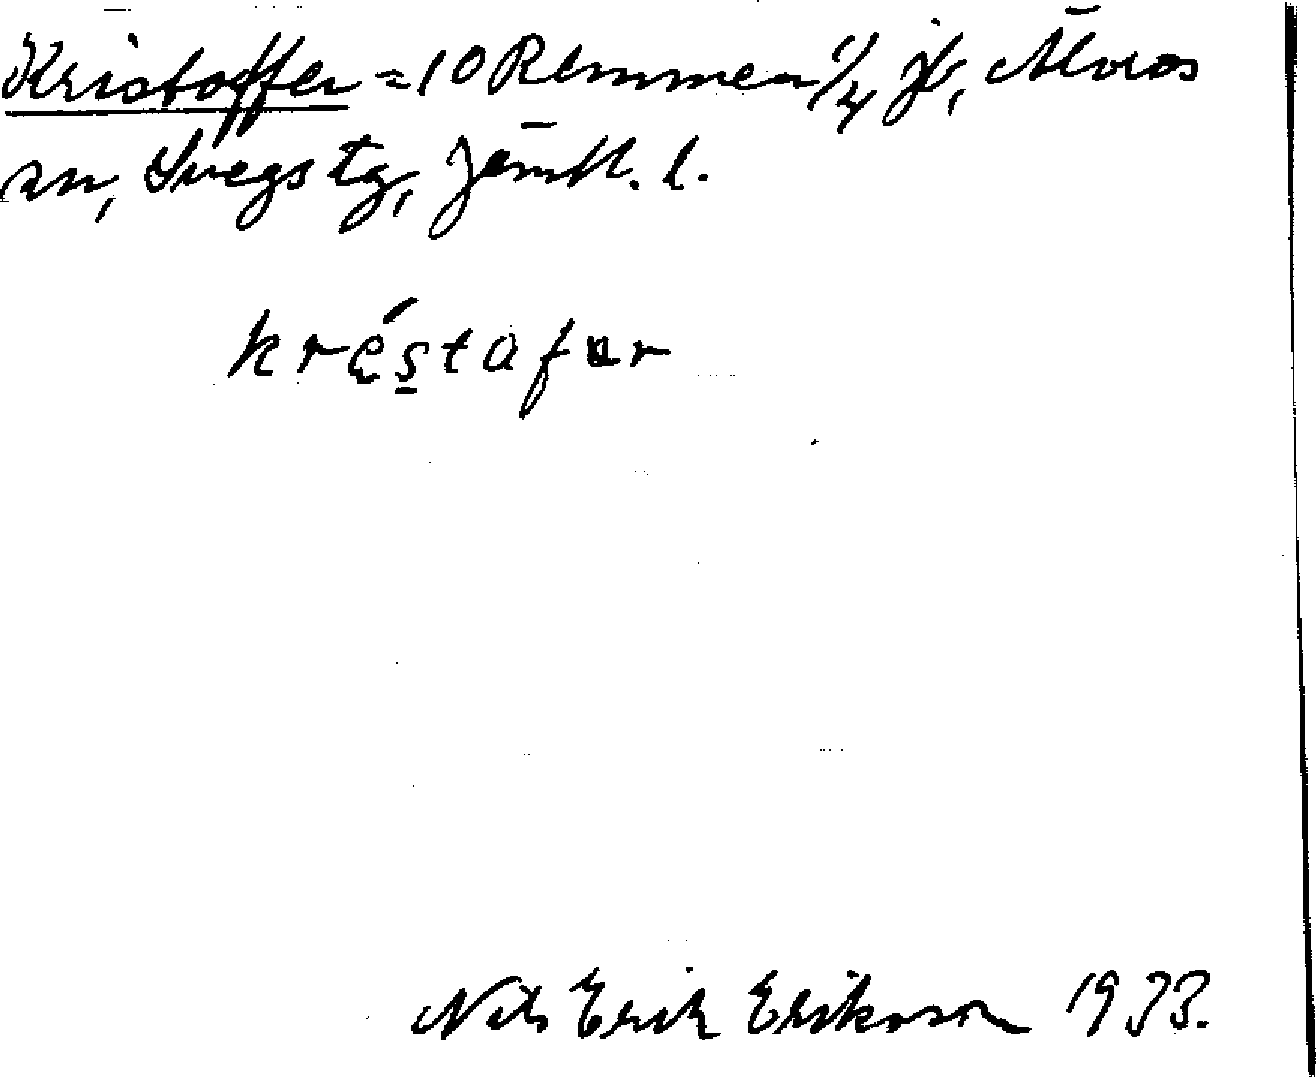 Kristoffer = 10 Remmen 1/4 jb, Älvros
sn, Svegs tg, Jämtl. l.
kréstafər
Nils Erik Eriksson 1933.